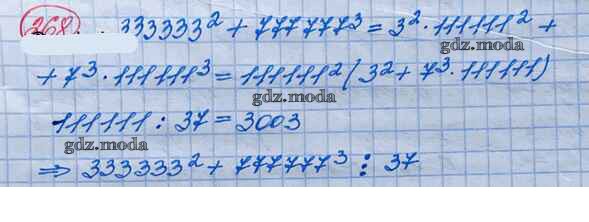 268 333333² + 777777³ = 3² · 111111² +
gdz.moda
+ 7³ · 111111³ = 111111² (3² + 7³ · 111111)
gdz.moda
111111 : 37 = 3003
gdz.moda
⇒ 333333² + 777777³ ⋮ 37